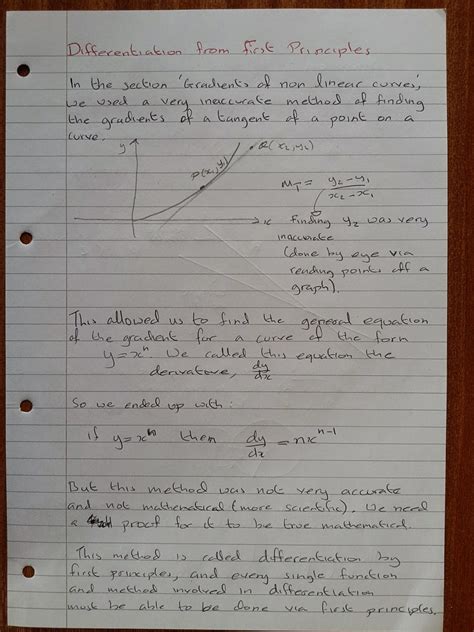 Differentiation from first Principles
In the section 'Gradients of non linear curves',
we used a very inaccurate method of finding
the gradients of a tangent of a point on a
curve.
y
P(x₁,y₁)
Q(x₂,y₂)
x
M_T = y₂-y₁ / x₂-x₁
Finding y₂ was very
inaccurate
(done by eye via
reading points off a
graph).
This allowed us to find the general equation
of the gradient for a curve of the form
y=xⁿ. We called this equation the
derivative, dy/dx
So we ended up with:
if y=xⁿ then dy/dx = nxⁿ⁻¹
But this method was not very accurate
and not mathematical (more scientific). We need
a proof for it to be true mathematical.
This method is called differentiation by
first principles, and every single function
and method involved in differentiation
must be able to be done via first principles.